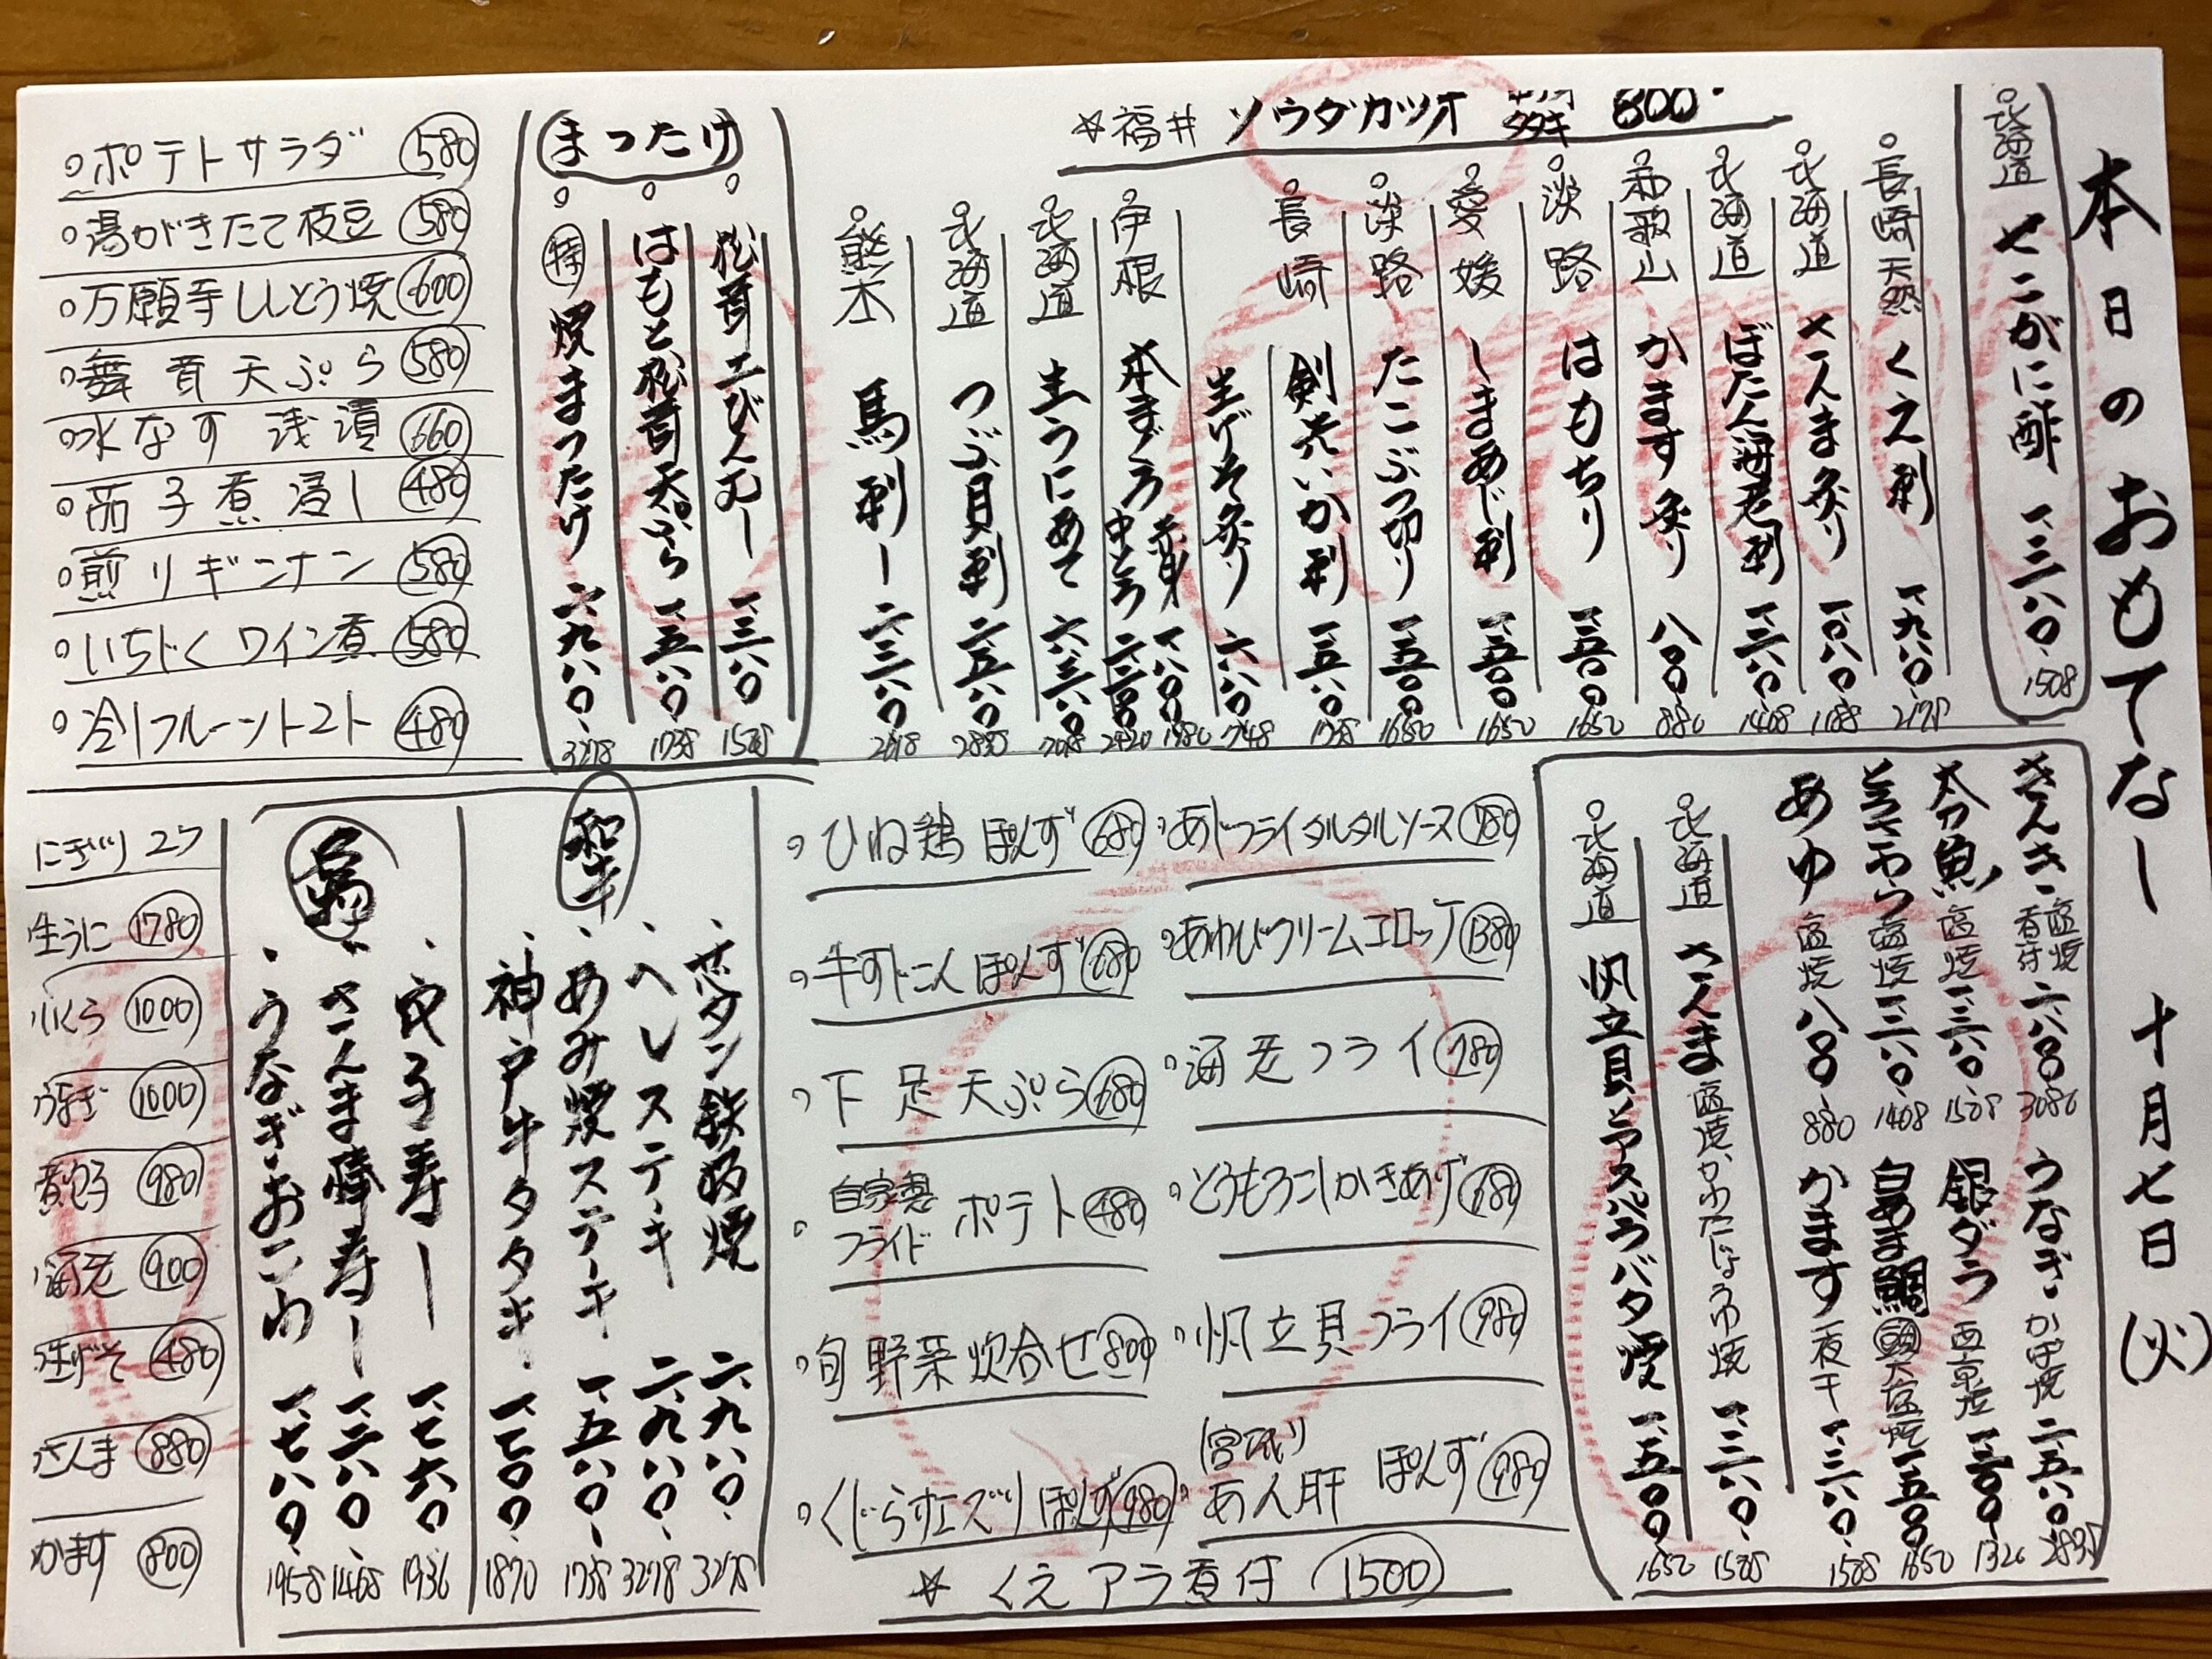 本日のおもてなし 十月七日(火)
北海道 せこがに酢 一、三八〇、1508
☆福井 ソウダカツオ 800
長崎 天然 くえ刺 一、九八〇、2178
北海道 さんま炙り 一、〇八〇、1188
北海道 ぼたん海老刺 一、二八〇、1408
和歌山 かます炙り 八〇〇、880
淡路 はもちり 一、五〇〇 1650
愛媛 しまあじ刺 一、五〇〇 1650
淡路 たこぶつ切り 一、五〇〇
長崎 剣先いか刺 一、五八〇 1738
生げそ炙り 六八〇 748
伊根 本まぐろ 赤身 一、八〇〇 1980
中とろ 二、二〇〇 2420
北海道 生うにあて 六、三八〇 7018
北海道 つぶ貝刺 二、五八〇 2838
熊本 馬刺し 二、三八〇 2618
まったけ
松茸土びんむし 一、三八〇 1508
はもと松茸天ぷら 一、五八〇、1738
特 焼まったけ 二、九八〇、3278
ポテトサラダ 580
湯がきたて枝豆 580
万願寺ししとう焼 600
舞茸天ぷら 580
水なす 浅漬 660
茄子煮浸し 480
煎りギンナン 580
いちじくワイン煮 580
冷しフルーツトマト 480
きんき 塩焼 香草焼 二、八〇〇、3080
太刀魚 塩焼 一、三八〇、1508
とろさわら 塩焼 一、二八〇、1408
あゆ 塩焼 八〇〇、880
うなぎ かば焼 二、五八〇、2838
銀ダラ 西京焼
白あま鯛 頭 大塩焼 一、五〇〇 1650
かます 一夜干 一、三八〇、1508
北海道 さんま 塩焼、かわたじょうゆ焼 一、三八〇、1508
北海道 帆立貝とアスパラバター 一、五〇〇、1650
あじフライタルタルソース 780
あわびクリームコロッケ 1380
海老フライ 780
とうもろこしかきあげ 680
帆立貝フライ 980
(宮城) あん肝 ぽんず 980
ひね鶏 ぽんず 680
牛すじこん ぽんず 680
下足天ぷら 680
自家製フライドポテト 480
旬野菜炊合せ 800
くじらすエズリ ぽんず 980
☆ くえ アラ煮付 1500
和牛
芯タン鉄板焼 二、九八〇、3278
ヘレステーキ 二、九八〇、3278
あみ焼ステーキ 一、五八〇、1738
神戸牛タタキ 一、七〇〇、1870
穴子寿し 一、七六〇 1936
さんま棒寿し 一、二八〇、1408
うなぎ・おこわ 一、七八〇、1958
にぎり 2ケ
生うに 1780
いくら 1000
うなぎ 1000
煮穴子 980
海老 900
生げそ 480
さんま 880
かます 800